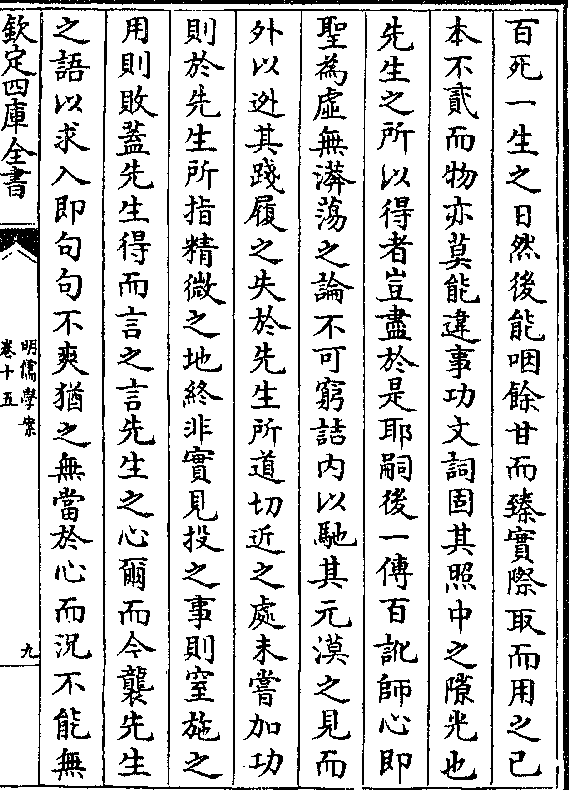 百死一生之日然後能咽餘甘而臻實際取而用之已
本不貳而物亦莫能違事功文詞固其照中之隙光也
先生之所以得者豈盡於是耶嗣後一傳百訛師心即
聖為虛無漭蕩之論不可窮詰内以馳其元漠之見而
外以逊其踐履之失於先生所道切近之處未嘗加功
則於先生所指精微之地終非實見投之事則窒施之
用則敗蓋先生得而言之言先生之心爾而今襲先生
之語以求入即句句不爽猶之無當於心而況不能無
欽定四庫全書
明儒學案
卷十五
九